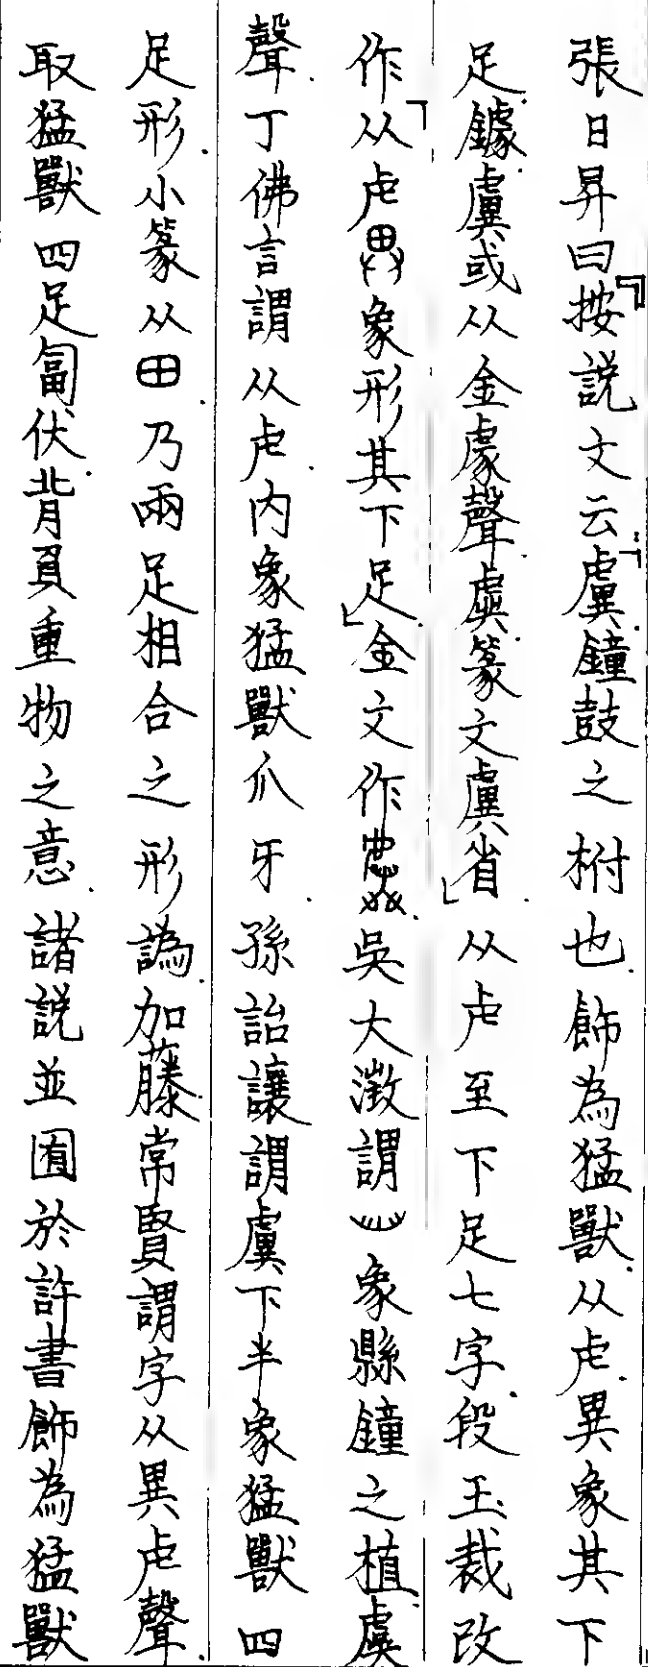 張日昇曰按說文云虡鐘鼓之柎也飾為猛獸从虍異象其下
足鐻虡或从金豦聲虡篆文虡省从虍至下足七字段玉裁改
作从虍象形其下足金文作吳大澂謂象縣鐘之植虡
聲丁佛言謂从虍內象猛獸爪牙孫詒讓謂虡下半象猛獸四
足形小篆从田乃兩足相合之形譌加藤常賢謂字从異虍聲
取猛獸四足匐伏背負重物之意諸說並囿於許書飾為猛獸